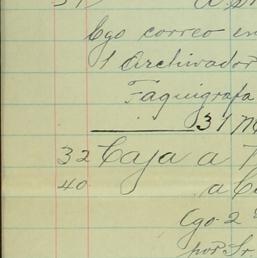 31
Cgo correo en
1 Archivador
Taquigrafa
31
32 Caja a
40 a
Cgo 2
por Sr